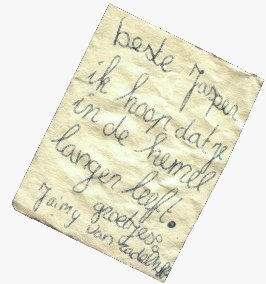 beste Jasper
ik hoop dat je
in de hemel
langer leeft.
groetjes
Jaimy van